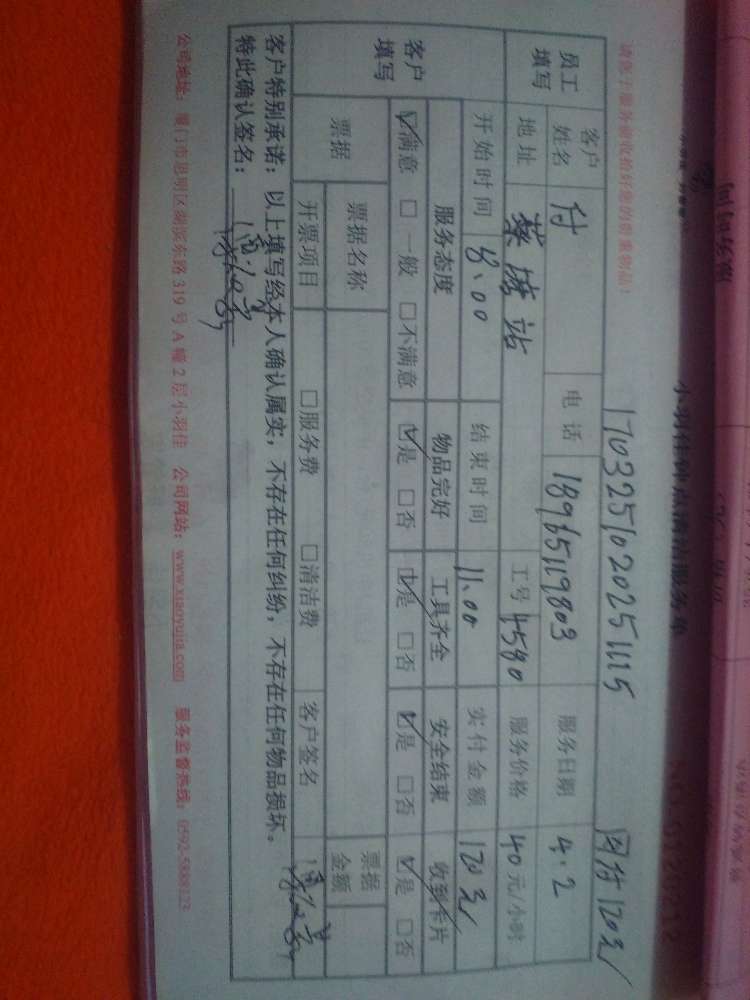 小羽佳钟点清洁服务单
17032510202511115 网付120元
请您于服务前收拾好您的贵重物品!
员工填写 客户姓名 付 电话 18965119803 服务日期 4.2
地址 蔡塘站 工号 4580 服务价格 40元/小时
开始时间 8:00 结束时间 11:00 实付金额 120元
客户填写 服务态度 物品完好 工具齐全 安全结束 收到卡片
☑满意 □一般 □不满意 ☑是 □否 ☑是 □否 ☑是 □否 ☑是 □否
票据 票据名称 票据金额
开票项目 □服务费 □清洁费 客户签名
客户特别承诺:以上填写经本人确认属实,不存在任何纠纷,不存在任何物品损坏。
特此确认签名:
公司地址:厦门市思明区湖滨东路319号A幢2层小羽佳 公司网站:www.xiaoyujia.com 服务监督热线:0592-5888123